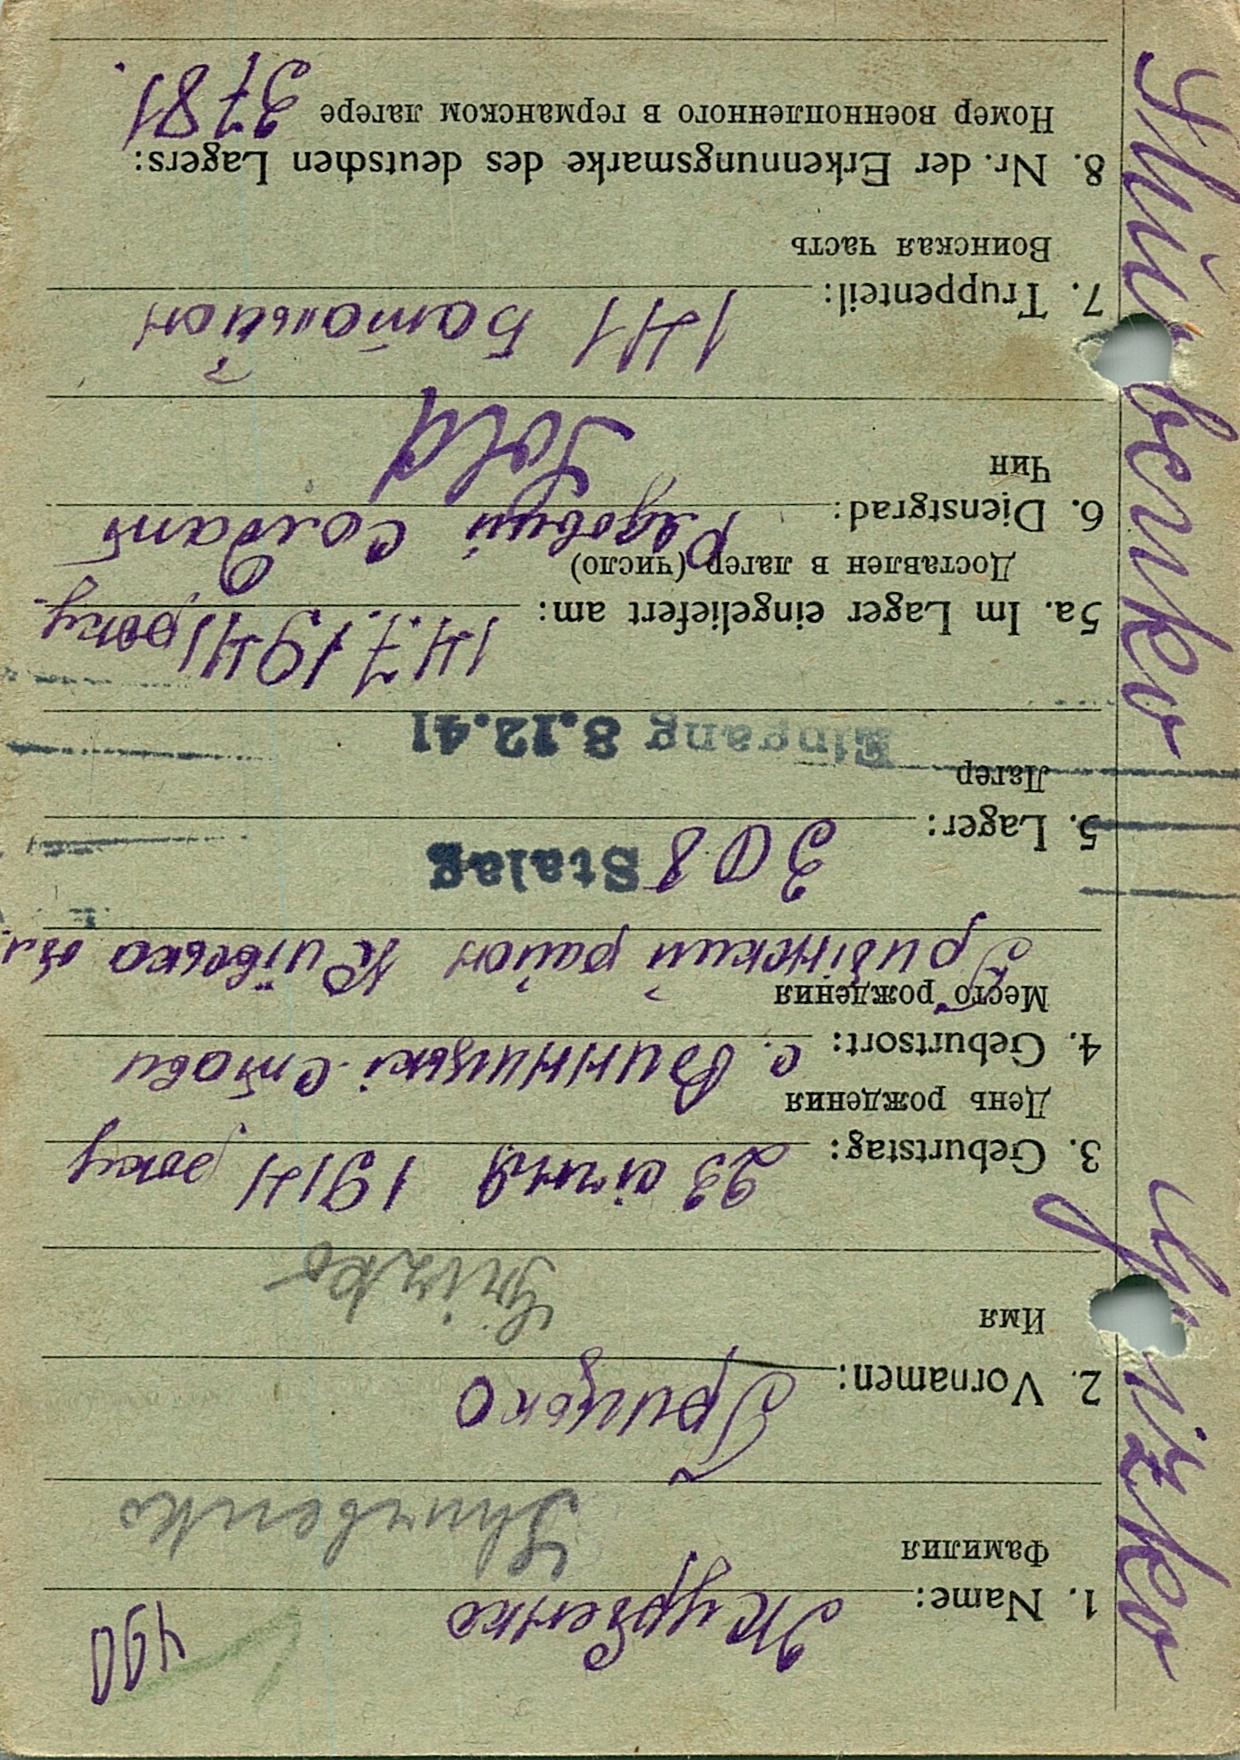 490
1. Name: Журбенко
Фамилия
Shurbenko
2. Vornamen: Грицько
Имя
Grizko
3. Geburtstag: 23 січня 1914 року
День рождения
4. Geburtsort: с. Винницькі-Стави
Место рождения
район Київська обл.
5. Lager: 308 Stalag
Лагер
Eingang 8.12.41
5a. Im Lager eingeliefert am: 14.7.1941 року
Доставлен в лагер (число)
6. Dienstgrad: Рядовий Солдат
Чин
Sold
7. Truppenteil: 141 Батальйон
Воинская часть
8. Nr. der Erkennungsmarke des deutschen Lagers:
Номер военнопленного в германском лагере 3781.
Shurbenko Grizko